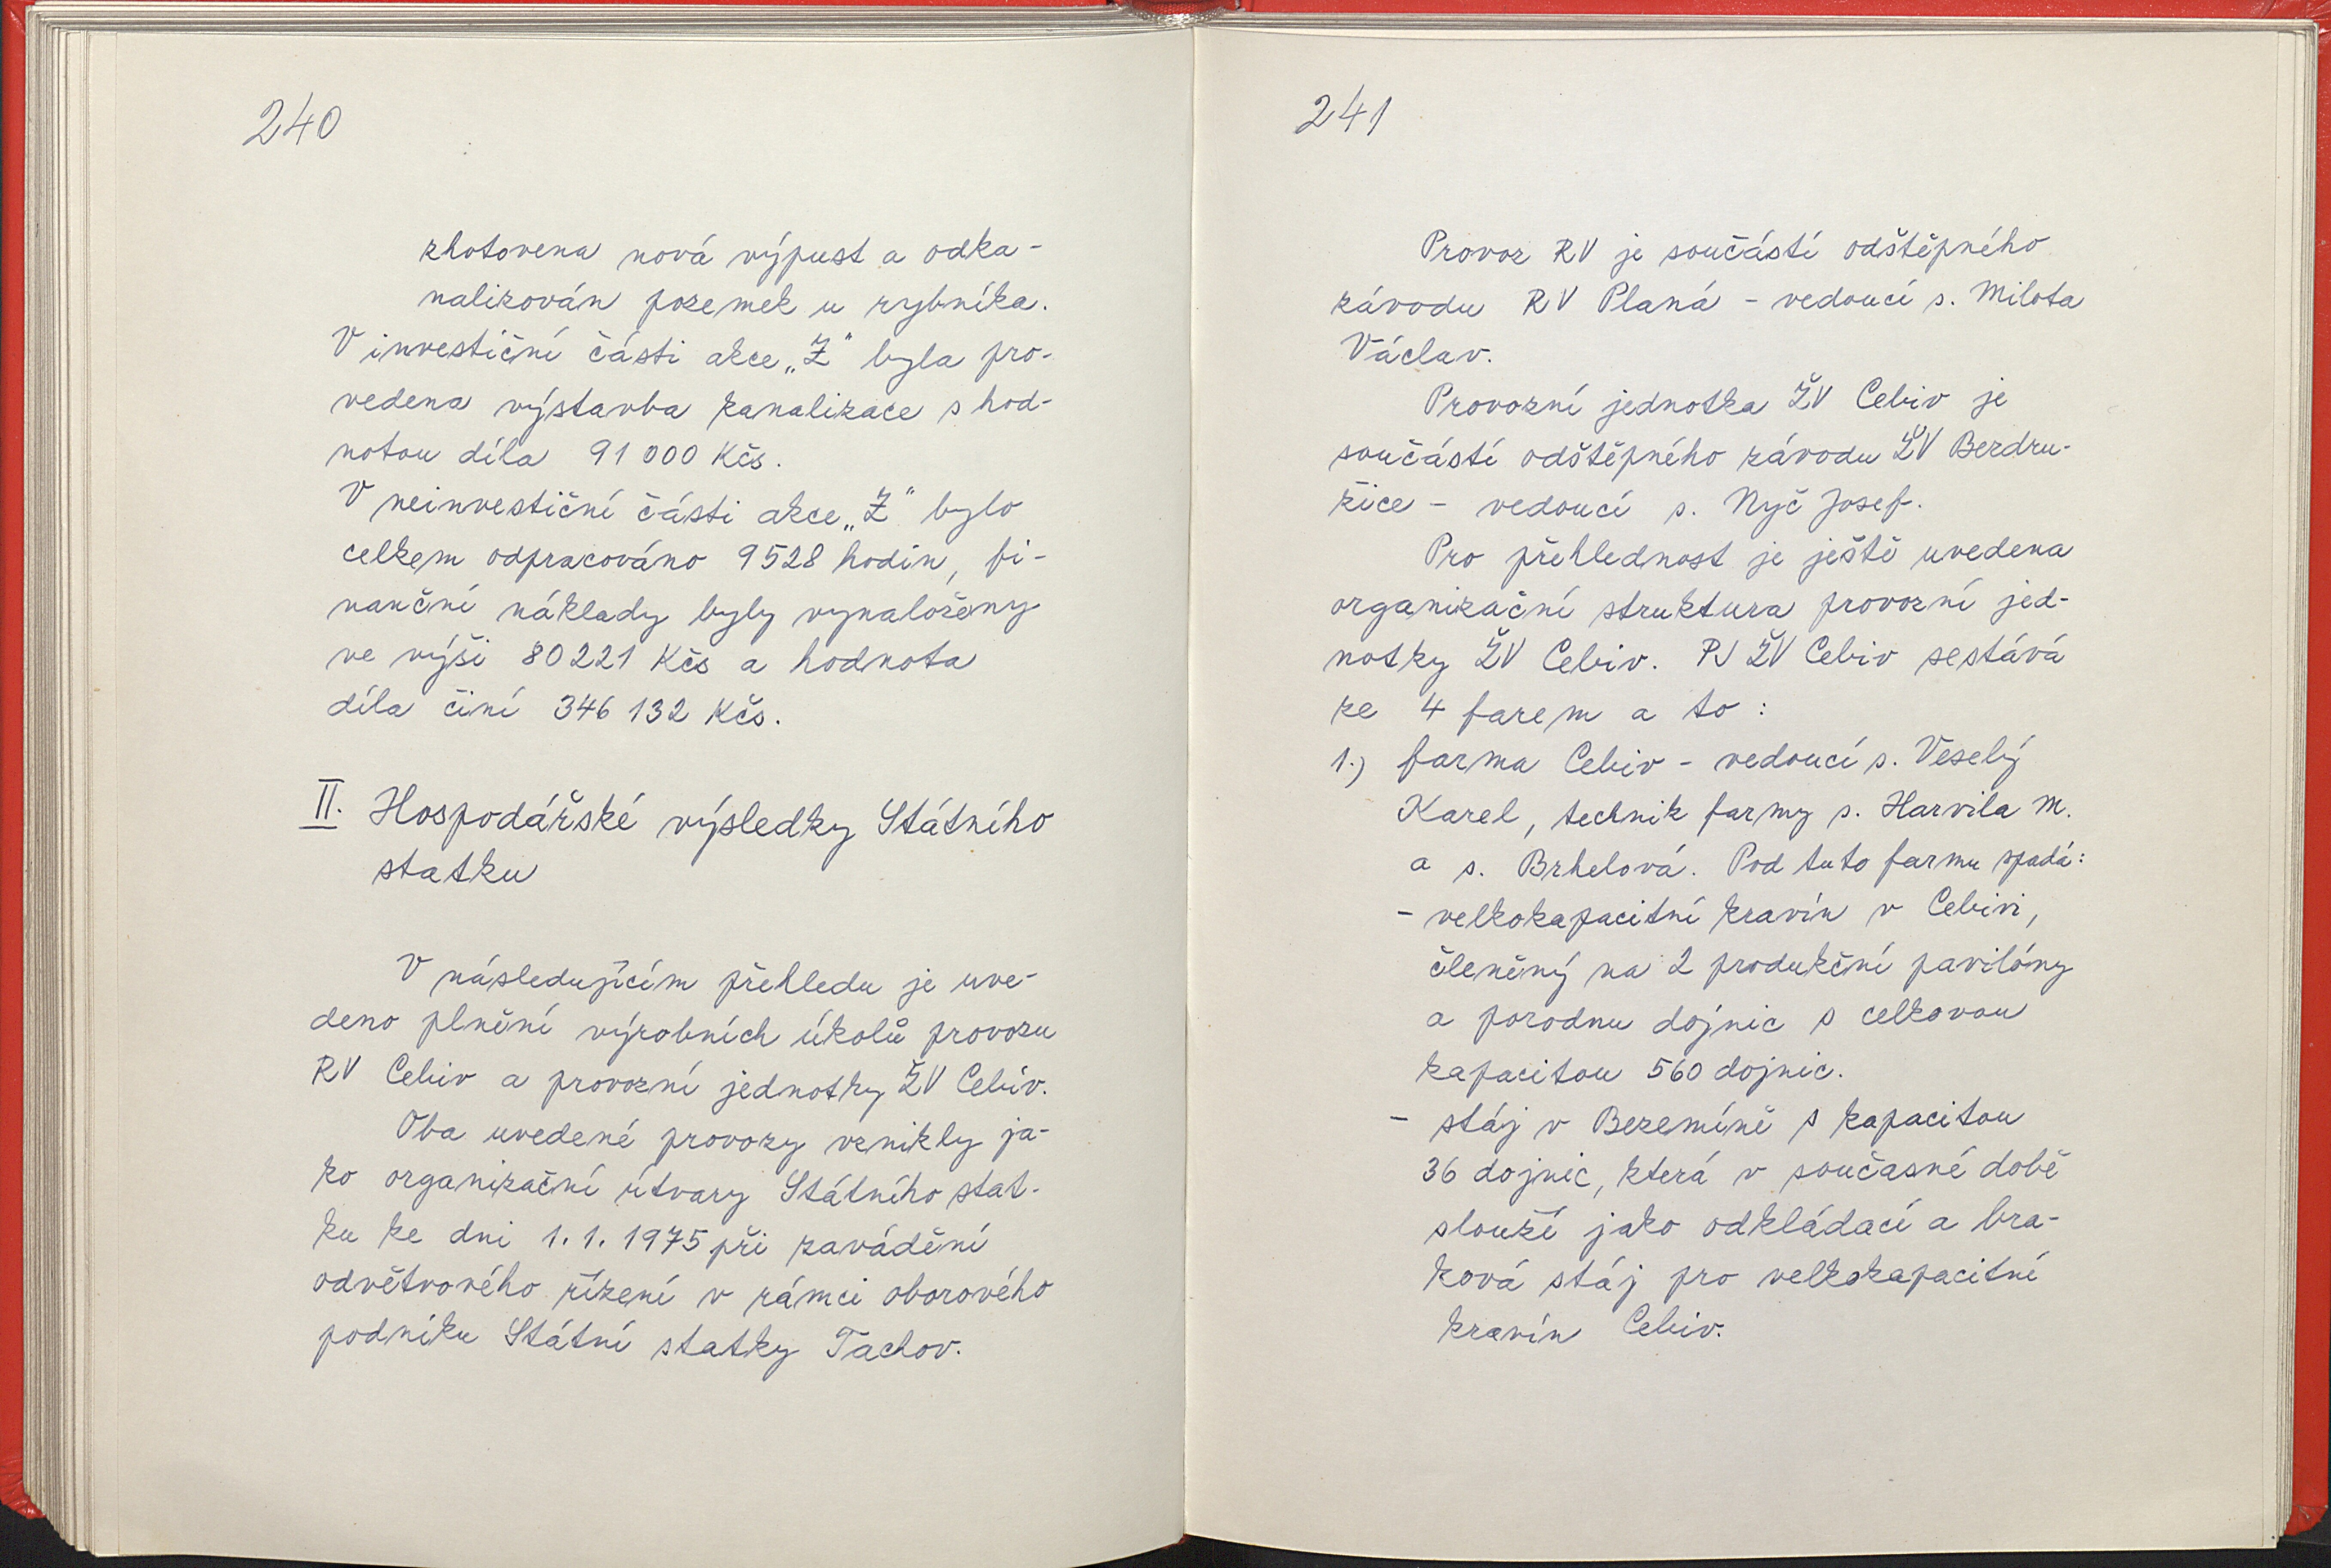 240
zhotovena nová výpust a odka-
nalizován pozemek u rybníka.
V investiční části akce „Z" byla pro-
vedena výstavba kanalizace s hod-
notou díla 91 000 Kčs.
V neinvestiční části akce „Z" bylo
celkem odpracováno 9528 hodin, fi-
nanční náklady byly vynaloženy
ve výši 80221 Kčs a hodnota
díla činí 346 132 Kčs.
II. Hospodářské výsledky Státního
statku
V následujícím přehledu je uve-
deno plnění výrobních úkolů provozu
RV Cebiv a provozní jednotky ŽV Cebiv.
Oba uvedené provozy vznikly ja-
ko organizační útvary Státního stat-
ku ke dni 1. 1. 1975 při zavádění
odvětvového řízení v rámci oborového
podniku Státní statky Tachov.
241
Provoz RV je součástí odštěpného
závodu RV Planá - vedoucí s. Milota
Václav.
Provozní jednotka ŽV Cebiv je
součástí odštěpného závodu ŽV Bezdru-
žice - vedoucí s. Nyč Josef.
Pro přehlednost je ještě uvedena
organizační struktura provozní jed-
notky ŽV Cebiv. PJ ŽV Cebiv sestává
ze 4 farem a to :
1.) farma Cebiv - vedoucí s. Veselý
Karel, technik farmy s. Harvila M.
a s. Brhelová. Pod tuto farmu spadá:
- velkokapacitní kravín v Cebivi,
členěný na 2 produkční pavilóny
a porodnu dojnic s celkovou
kapacitou 560 dojnic.
- stáj v Bezemíně s kapacitou
36 dojnic, která v současné době
slouží jako odkládací a bra-
ková stáj pro velkokapacitní
kravín Cebiv.